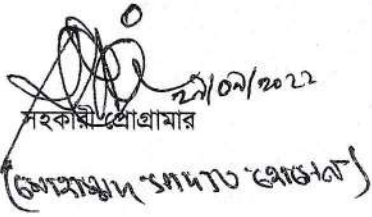 ২৯/০৯/২০২২
সহকারী প্রোগ্রামার
(মোহাম্মদ সাদাত হোসেন)